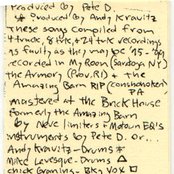 Produced by Pete D.
* Produced by Andy Kravitz
These songs compiled from
4 track, 8 trk + 24 trk recordings
as faulty as they may be. 95-
recorded in My Room (Sardoga NY)
the Armory (Prov. RI) + the
Amazing Barn RIP (conshohocken
PA
mastered at the Brick House
formerly the Amazing Barn
by Neve limiters + Motown EQ's
instruments by Pete D. or...
Andy Kravitz - Drums *
Mike Levesque - Drums △
chick Graning - BK's VOX □